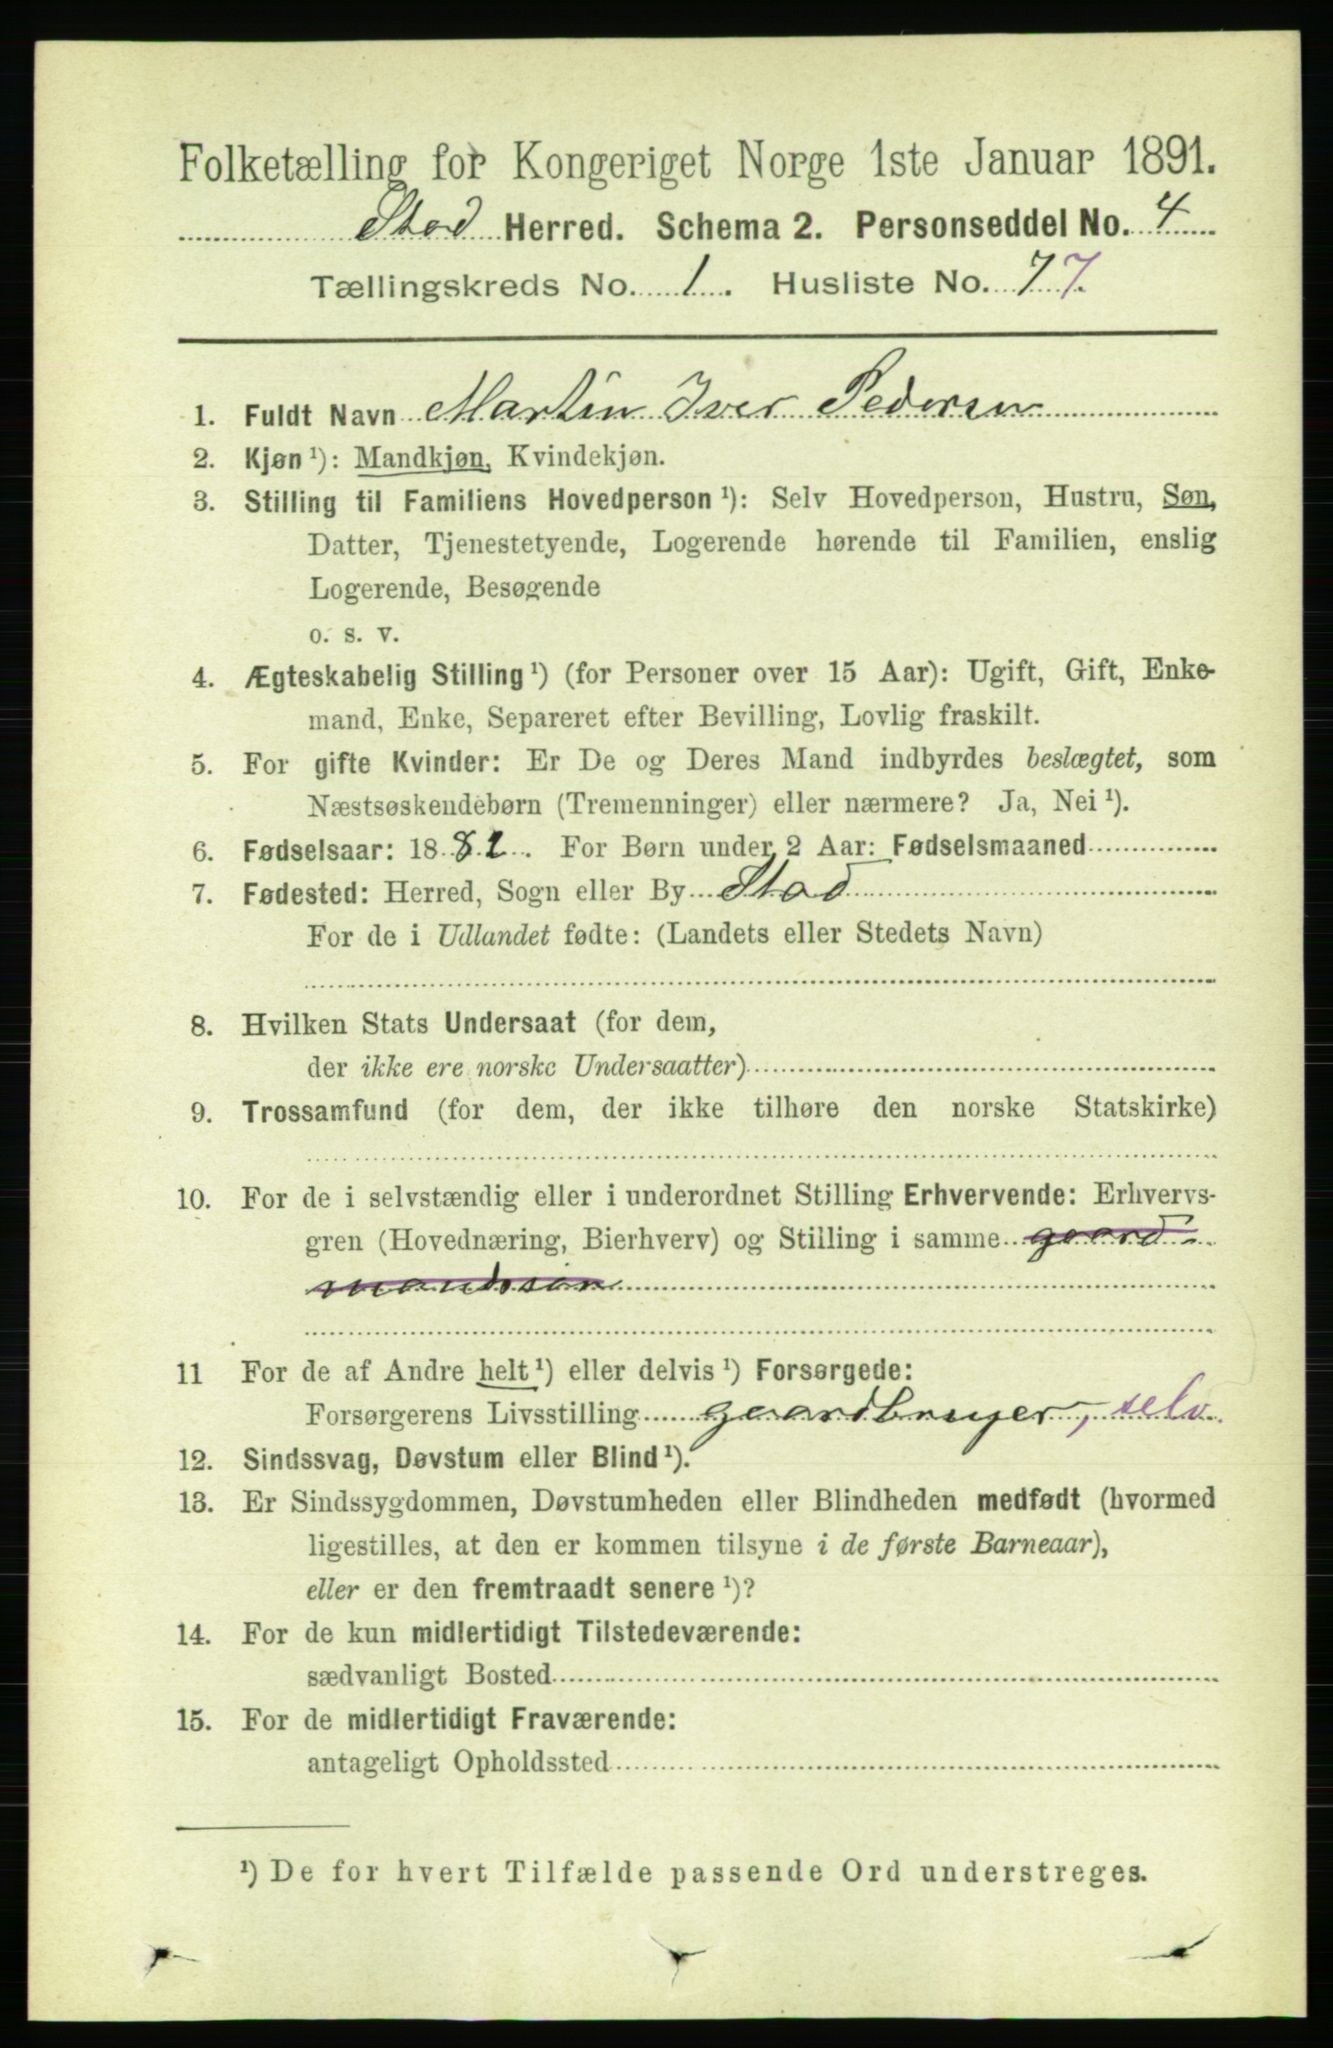 Folketælling for Kongeriget Norge 1ste Januar 1891.
Stod Herred. Schema 2. Personseddel No. 4
Tællingskreds No. 1. Husliste No. 7 7.
1. Fuldt Navn Martin Iver Pedersen
2. Kjøn ¹): Mandkjøn, Kvindekjøn.
3. Stilling til Familiens Hovedperson ¹): Selv Hovedperson, Hustru, Søn,
Datter, Tjenestetyende, Logerende hørende til Familien, enslig
Logerende, Besøgende
o. s. v.
4. Ægteskabelig Stilling ¹) (for Personer over 15 Aar): Ugift, Gift, Enke-
mand, Enke, Separeret efter Bevilling, Lovlig fraskilt.
5. For gifte Kvinder: Er De og Deres Mand indbyrdes beslægtet, som
Næstsøskendebørn (Tremenninger) eller nærmere? Ja, Nei ¹).
6. Fødselsaar: 18 82. For Børn under 2 Aar: Fødselsmaaned
7. Fødested: Herred, Sogn eller By Stod
For de i Udlandet fødte: (Landets eller Stedets Navn)
8. Hvilken Stats Undersaat (for dem,
der ikke ere norske Undersaatter)
9. Trossamfund (for dem, der ikke tilhøre den norske Statskirke)
10. For de i selvstændig eller i underordnet Stilling Erhvervende: Erhvervs-
gren (Hovednæring, Bierhverv) og Stilling i samme gaard-
mandssøn
11 For de af Andre helt ¹) eller delvis ¹) Forsørgede:
Forsørgerens Livsstilling gaardbruger, selv.
12. Sindssvag, Døvstum eller Blind ¹).
13. Er Sindssygdommen, Døvstumheden eller Blindheden medfødt (hvormed
ligestilles, at den er kommen tilsyne i de første Barneaar),
eller er den fremtraadt senere ¹)?
14. For de kun midlertidigt Tilstedeværende:
sædvanligt Bosted
15. For de midlertidigt Fraværende:
antageligt Opholdssted
¹) De for hvert Tilfælde passende Ord understreges.